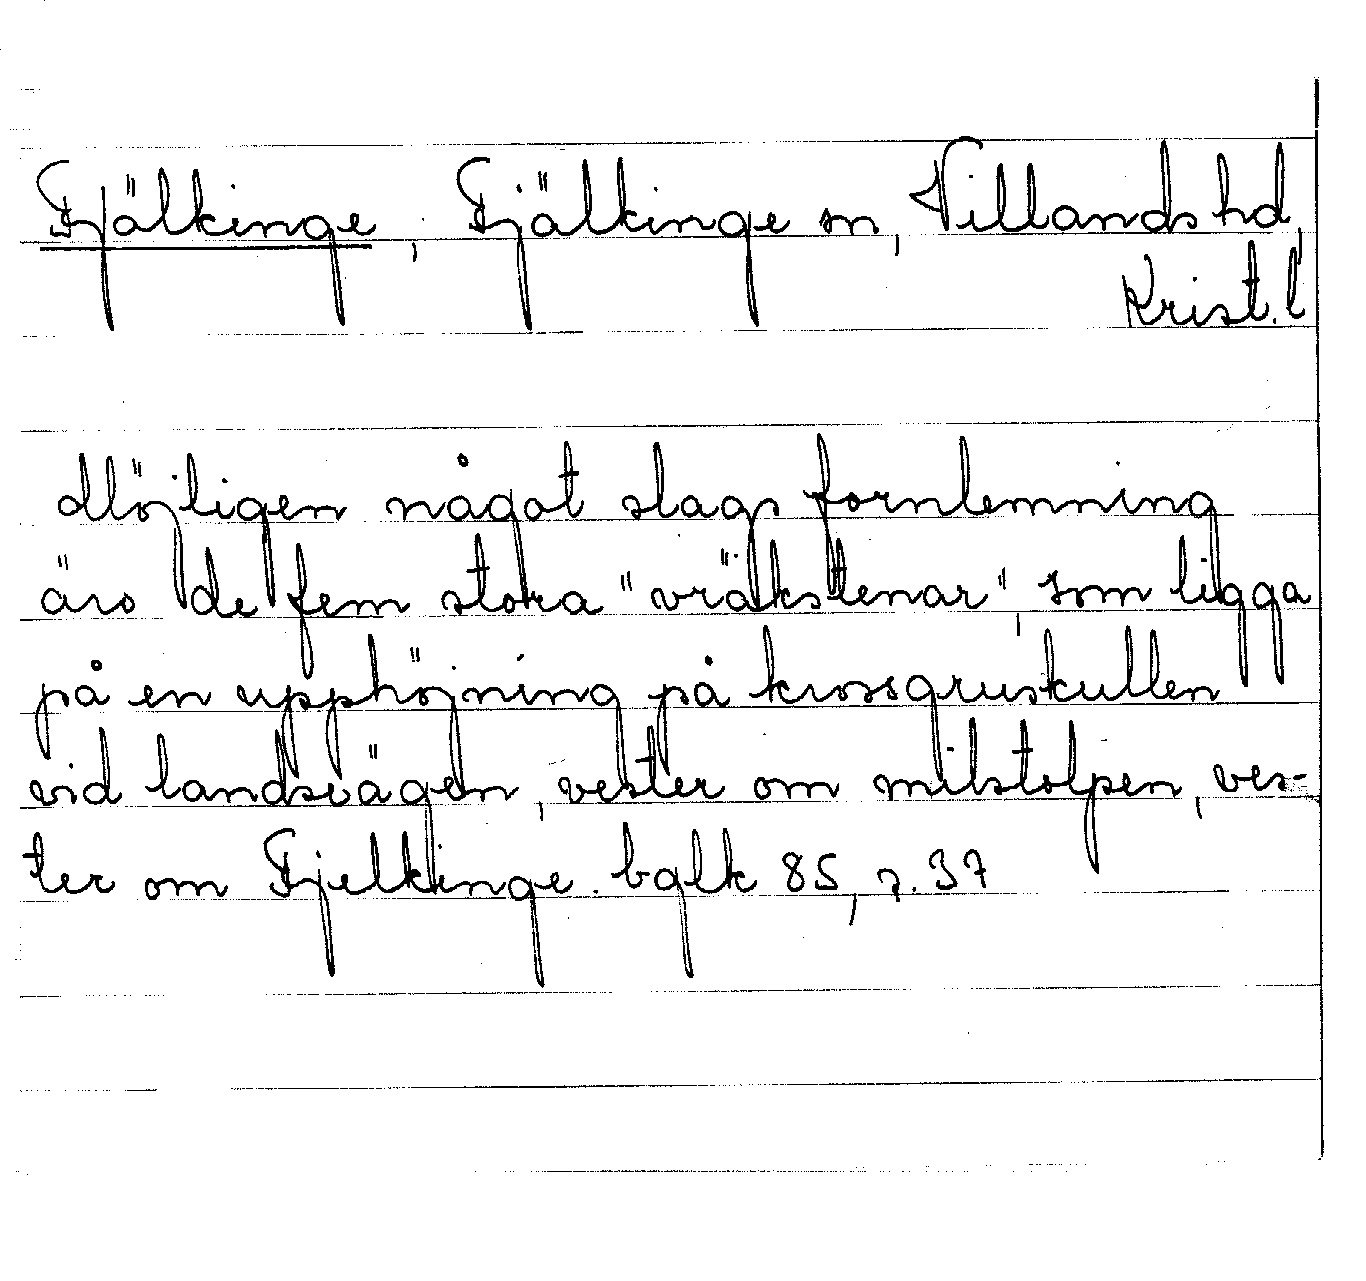 Fjälkinge, Fjälkinge sn, Villands hd,
Krist. l
Möjligen något slags fornlemning
äro de fem stora "vräkstenar", som ligga
på en upphöjning på krossgruskullen
vid landsvägen, vester om milstolpen, ves-
ter om Fjelkinge. bglk 85, s. 37